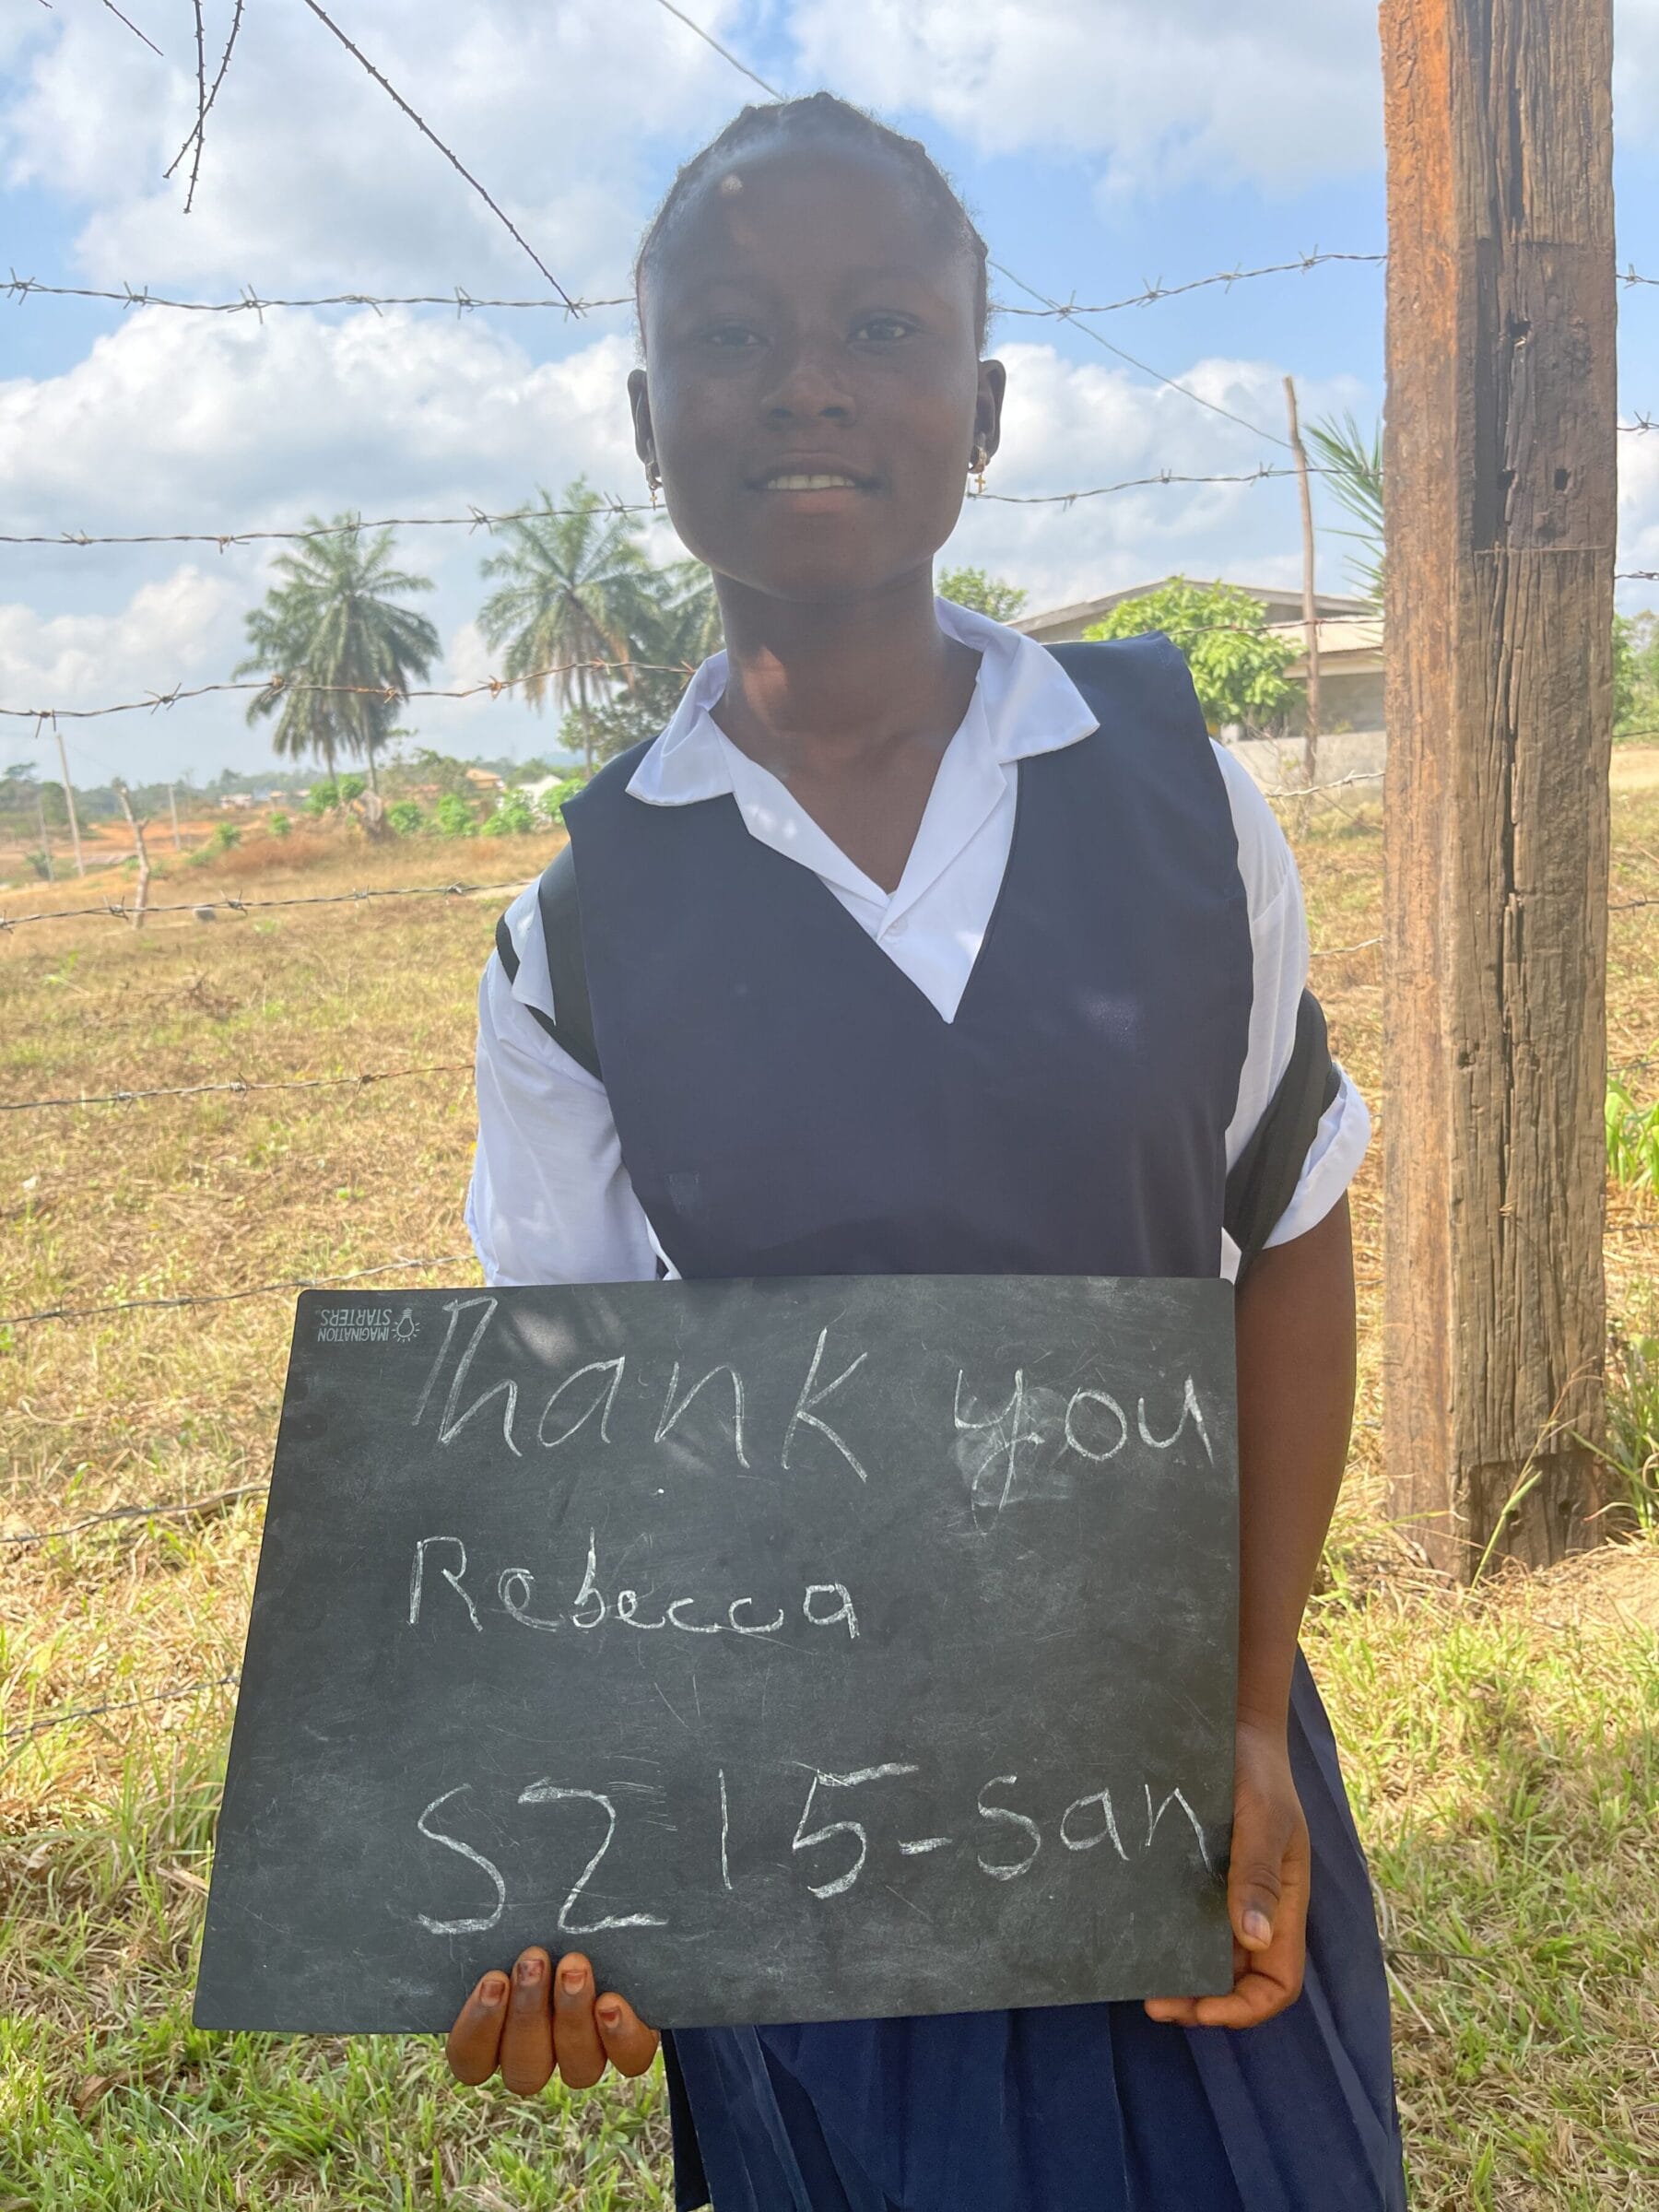 IMAGINATION
STARTERS
Thank you
Rebecca
S215-San